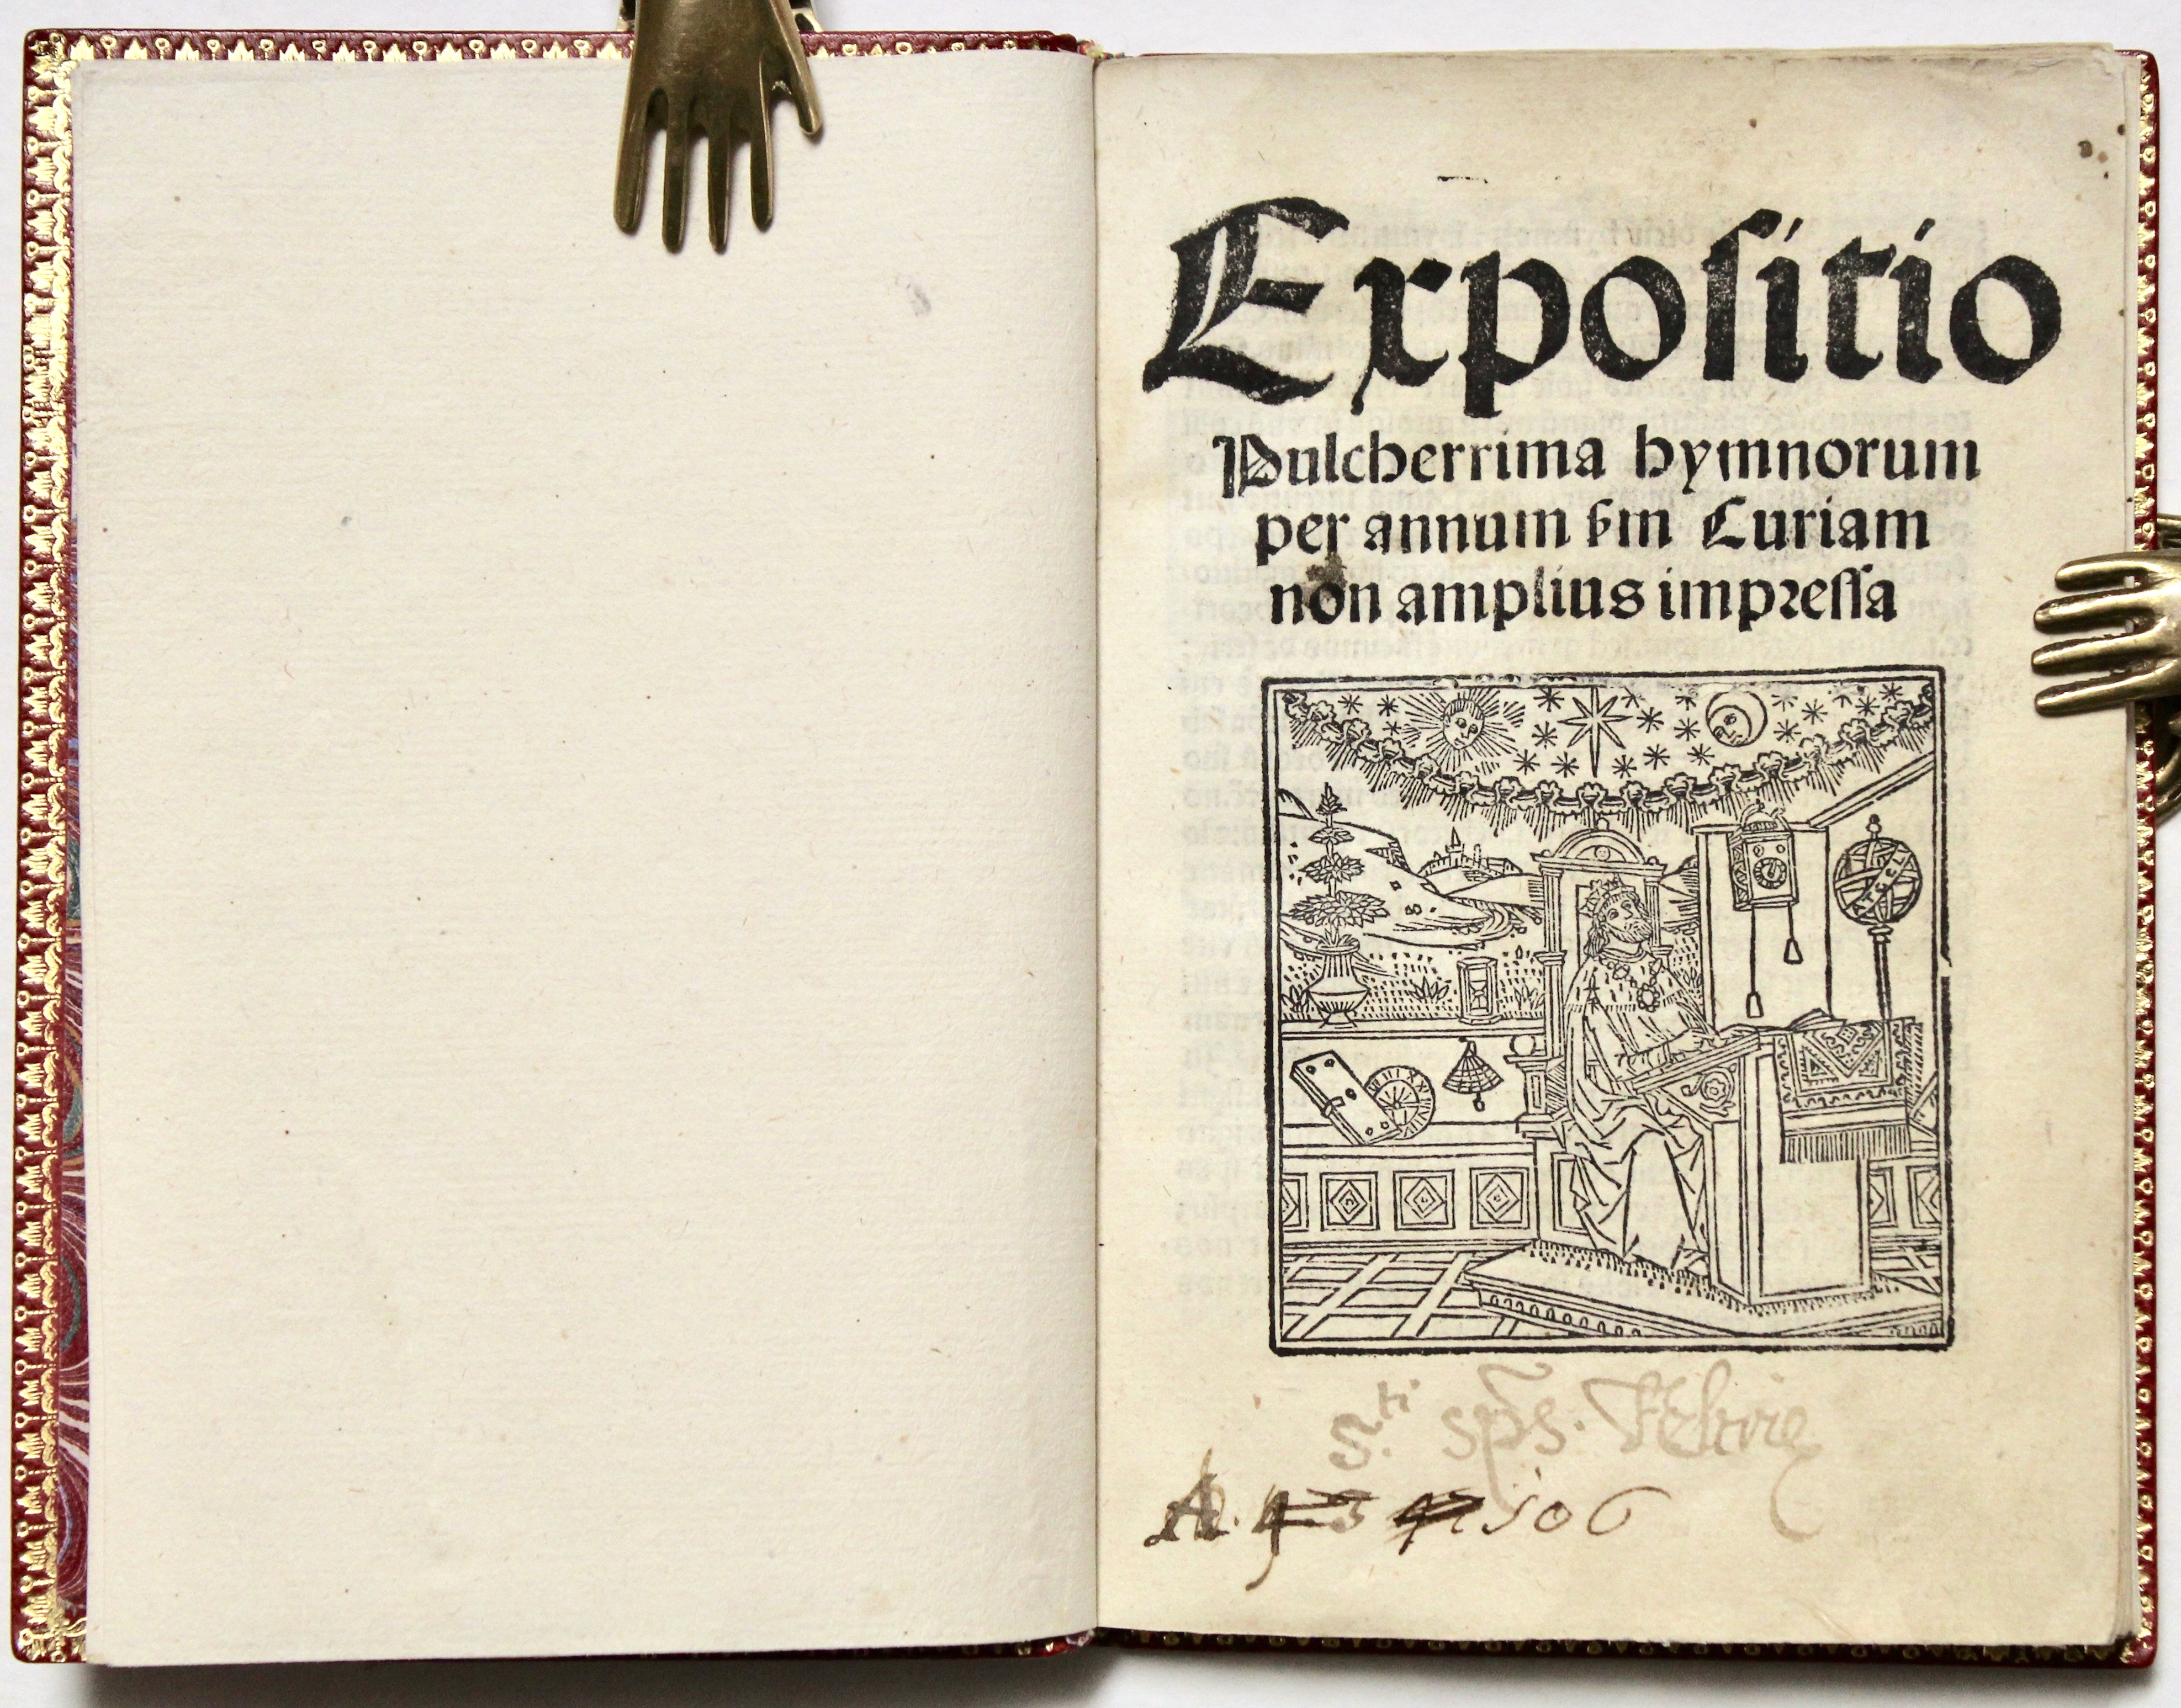 Expositio
Pulcherrima hymnorum
per annum ẜm Curiam
non amplius impressa
S.ti sps.
A. 506